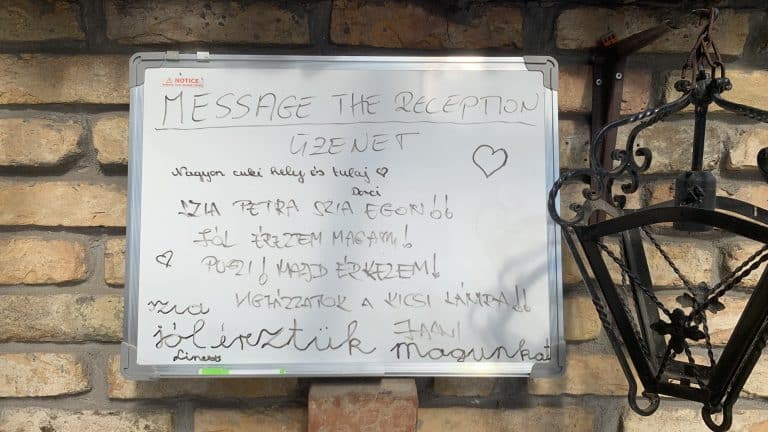 NOTICE
MESSAGE THE RECEPTION
ÜZENET
Nagyon cuki hely és tulaj
Dorci
SZIA PETRA SZIA EGON!!
JÓL ÉREZEM MAGAM!
PUSZI! MAJD ÉRKEZEM!
VIGYÁZZATOK A KICSI
szia
JANI
jól éreztük magunkat